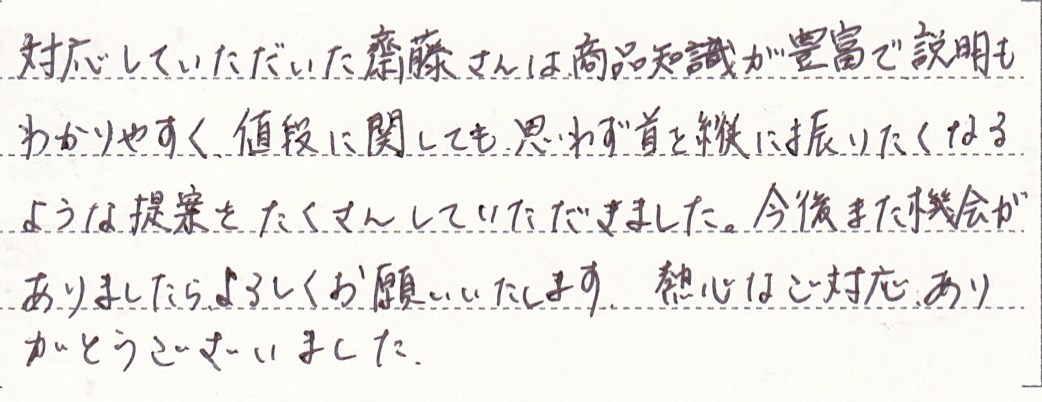 対応していただいた齋藤さんは商品知識が豊富で説明も
わかりやすく、値段に関しても、思わず首を縦に振りたくなる
ような提案をたくさんしていただきました。今後また機会が
ありましたら、よろしくお願いいたします。熱心なご対応、あり
がとうございました。